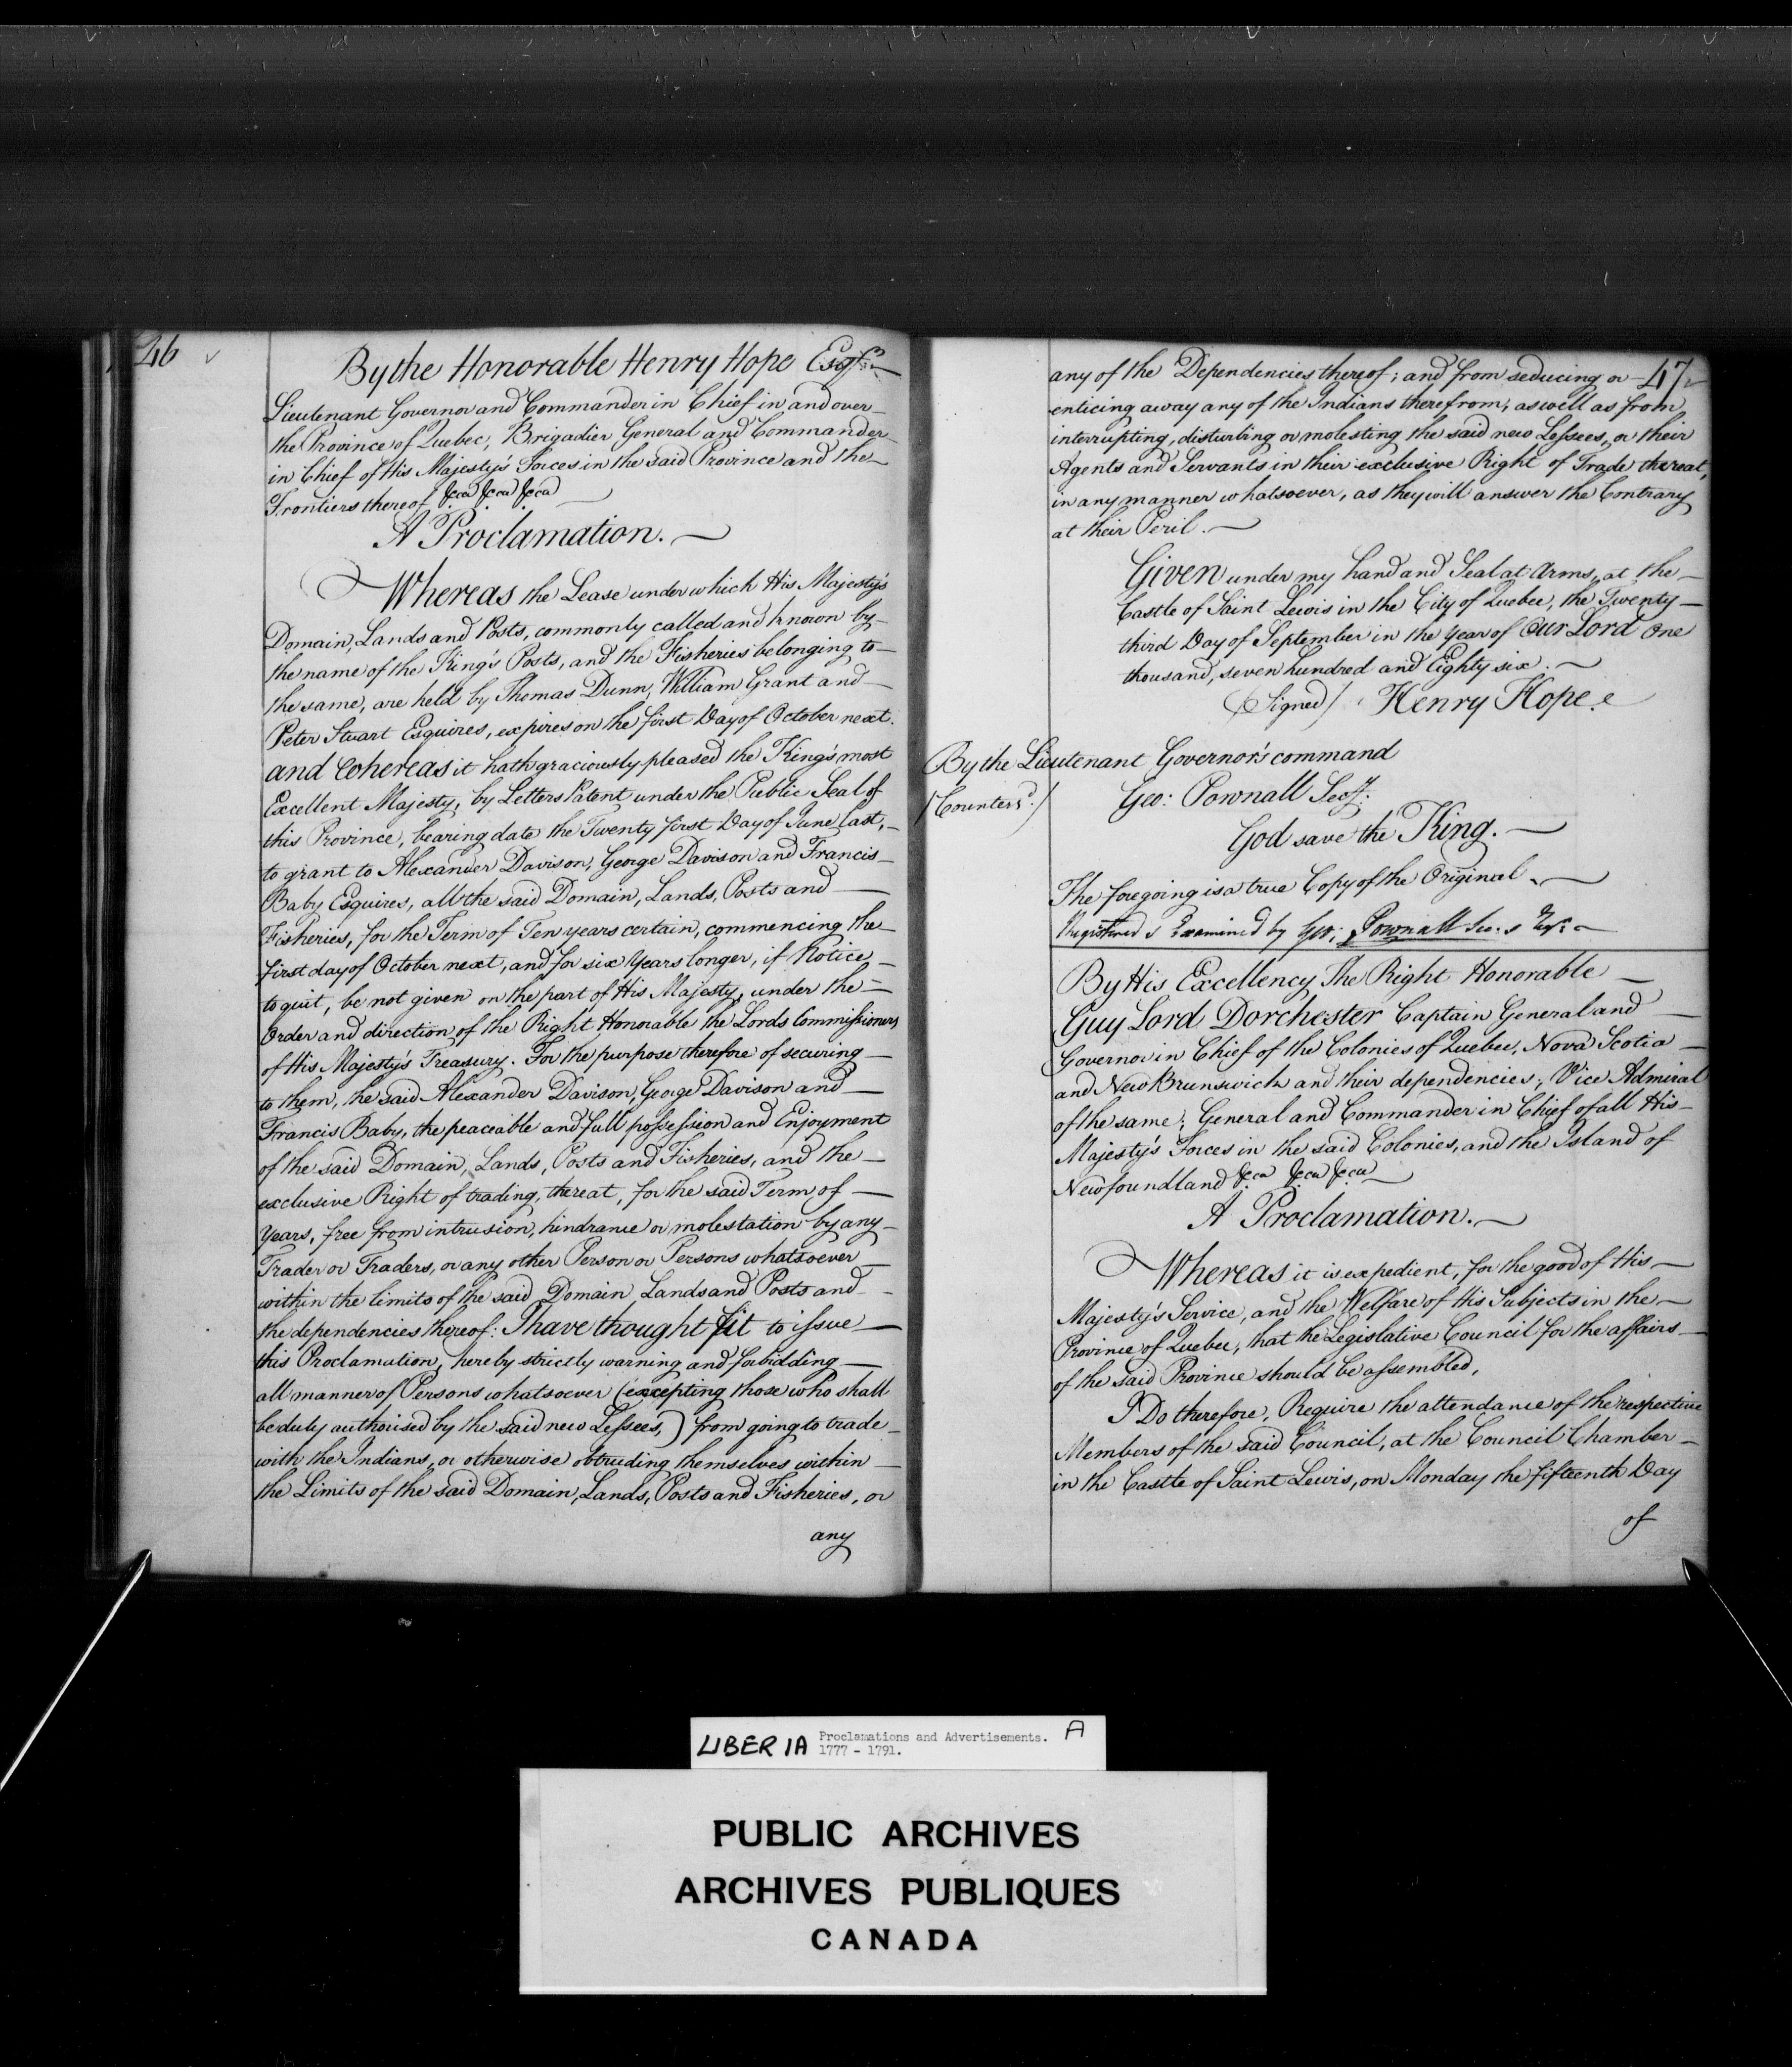 46
By the Honorable Henry Hope Esqr.
Lieutenant Governor and Commander in Chief in and over
the Province of Quebec, Brigadier General and Commander
in Chief of His Majesty's Forces in the said Province and the
Frontiers thereof &ca &ca &ca
A Proclamation.
Whereas the Lease under which His Majesty's
Domain, Lands and Posts, commonly called and known by
the name of the King's Posts, and the Fisheries belonging to
the same, are held by Thomas Dunn, William Grant and
Peter Stuart Esquires, expires on the first Day of October next.
and Whereas it hath graciously pleased the King's most
Excellent Majesty, by Letters Patent under the Public Seal of
this Province, bearing date the Twenty first Day of June last,
to grant to Alexander Davison, George Davison and Francis
Baby Esquires, all the said Domain, Lands, Posts and
Fisheries, for the Term of Ten years certain, commencing the
first day of October next, and for six Years longer, if Notice
to quit, be not given on the part of His Majesty, under the
Order and direction of the Right Honorable the Lords Commissioners
of His Majesty's Treasury. For the purpose therefore of securing
to them, the said Alexander Davison, George Davison and
Francis Baby, the peaceable and full possession and Enjoyment
of the said Domain, Lands, Posts and Fisheries, and the
exclusive Right of trading, thereat, for the said Term of
Years, free from intrusion, hindrance or molestation by any
Trader or Traders, or any other Person or Persons whatsoever
within the limits of the said Domain Lands and Posts and
the dependencies thereof: I have thought fit to issue
this Proclamation, hereby strictly warning and forbidding
all manner of Persons whatsoever (excepting those who shall
be duly authorised by the said new Lessees,) from going to trade
with the Indians, or otherwise obtruding themselves within
the Limits of the said Domain, Lands, Posts and Fisheries, or
any
47
any of the Dependencies thereof; and from seducing or
enticing away any of the Indians therefrom, as well as from
interrupting, disturbing or molesting the said new Lessees, or their
Agents and Servants in their exclusive Right of Trade thereat,
in any manner whatsoever, as they will answer the Contrary
at their Peril.
Given under my hand and Seal at Arms, at the
Castle of Saint Lewis in the City of Quebec, the Twenty
third Day of September in the Year of Our Lord One
thousand, seven hundred and Eighty six.
(Signed) Henry Hope.
By the Lieutenant Governor's command
(Counters'd.) Geo: Pownall Secy.
God save the King.
The foregoing is a true Copy of the Original
Registered & Examined by Geo: Pownall Sec. &
By His Excellency The Right Honorable
Guy Lord Dorchester Captain General and
Governor in Chief of the Colonies of Quebec, Nova Scotia
and New Brunswick and their dependencies; Vice Admiral
of the same; General and Commander in Chief of all His
Majesty's Forces in the said Colonies, and the Island of
Newfoundland &ca &ca &ca
A Proclamation.
Whereas it is expedient, for the good of His
Majesty's Service, and the Welfare of His Subjects in the
Province of Quebec, that the Legislative Council for the affairs
of the said Province should be assembled,
I Do therefore, Require the attendance of the respective
Members of the said Council, at the Council Chamber
in the Castle of Saint Lewis, on Monday the fifteenth Day
of
LIBER IA Proclamations and Advertisements. A
1777 - 1791.
PUBLIC ARCHIVES
ARCHIVES PUBLIQUES
CANADA